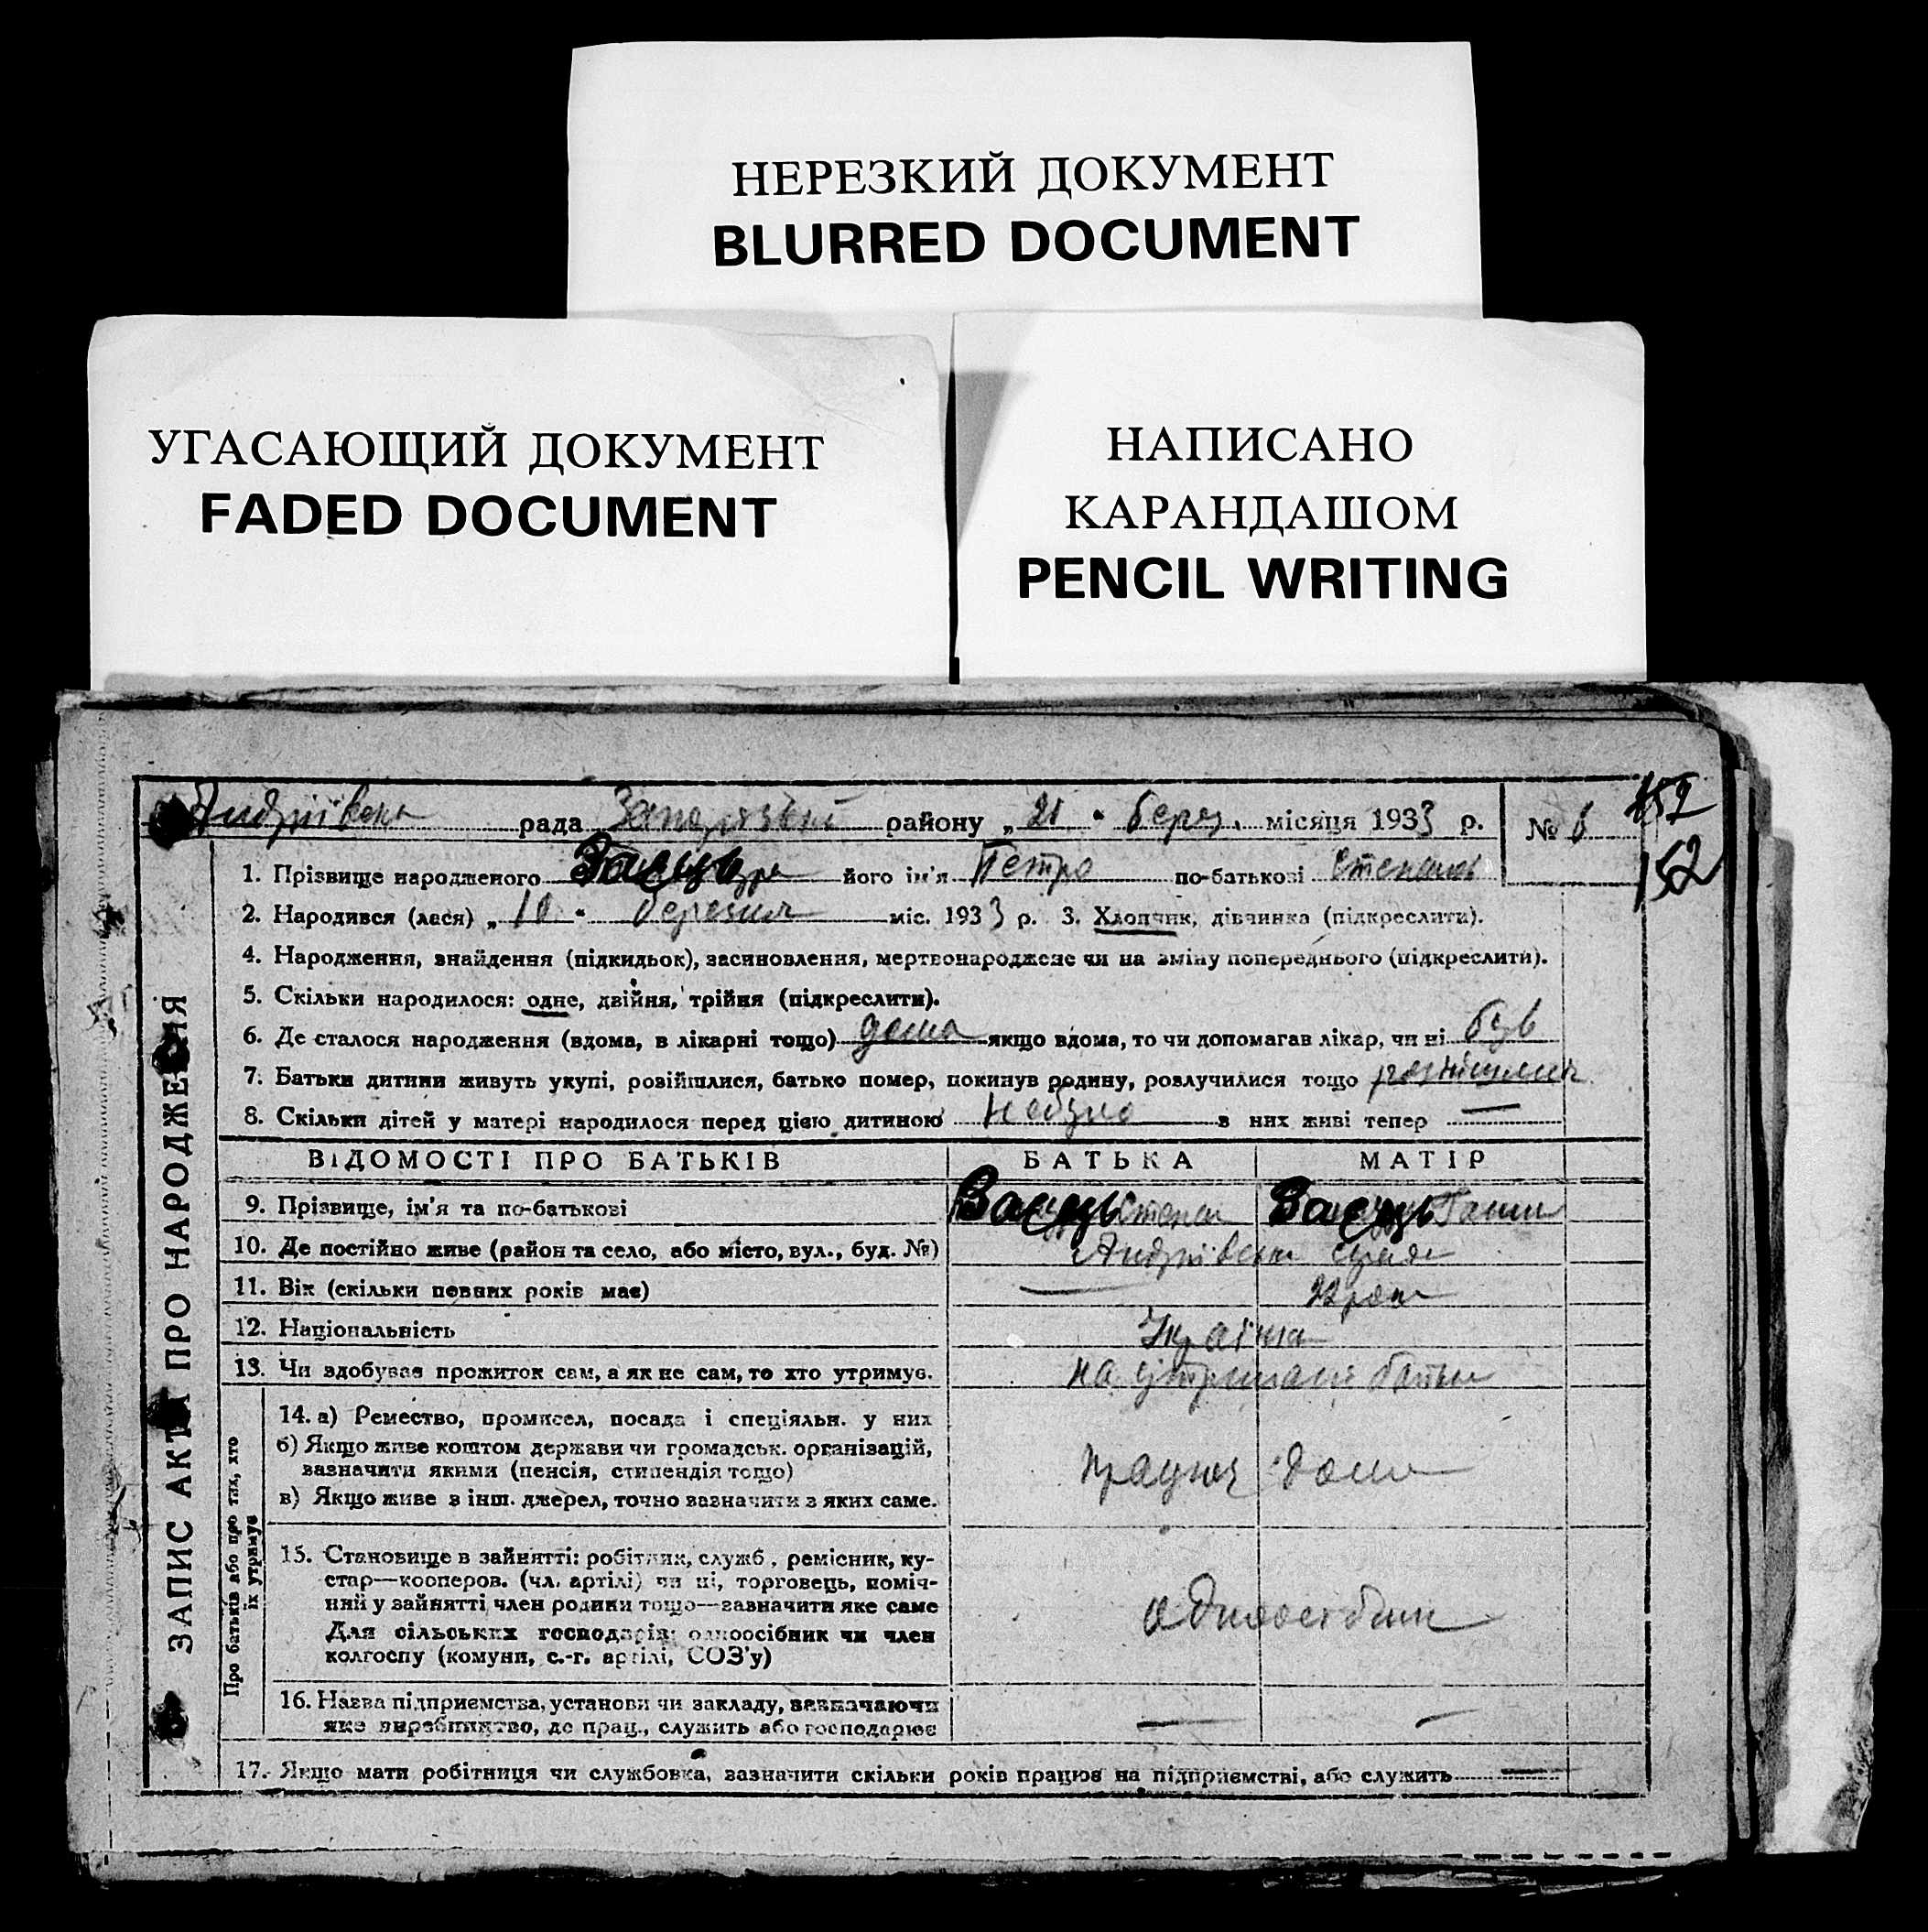 НЕРЕЗКИЙ ДОКУМЕНТ
BLURRED DOCUMENT
УГАСАЮЩИЙ ДОКУМЕНТ
FADED DOCUMENT
НАПИСАНО
КАРАНДАШОМ
PENCIL WRITING
рада району „ 21 " берез. місяця 1933 р. № 6
152
152
ЗАПИС АКТА ПРО НАРОДЖЕННЯ
1. Прізвище народженого Заєць його ім'я Петро по-батькові Степанов
2. Народився (лася) „ 10 " березня міс. 1933 р. 3. Хлопчик, дівчинка (підкреслити).
4. Народження, знайдення (підкидьок), засиновлення, мертвонароджене чи на зміну попереднього (підкреслити).
5. Скільки народилося: одне, двійня, трійня (підкреслити).
6. Де сталося народження (вдома, в лікарні тощо) дома якщо вдома, то чи допомагав лікар, чи ні був
7. Батьки дитини живуть укупі, розійшлися, батько помер, покинув родину, розлучилися тощо розійшлися
8. Скільки дітей у матері народилося перед цією дитиною Не було з них живі тепер —
ВІДОМОСТІ ПРО БАТЬКІВ БАТЬКА МАТІР
9. Прізвище, ім'я та по-батькові Заєць Степан Заєць Ганна
10. Де постійно живе (район та село, або місто, вул., буд. №)
11. Вік (скільки повних років має) — 22 роки
12. Національність
13. Чи здобуває прожиток сам, а як не сам, то хто утримує. на
Про батьків або про тих, хто
їх утримує
14. а) Ремество, промисел, посада і спеціяльн. у них
б) Якщо живе коштом держави чи громадськ. організацій,
зазначити якими (пенсія, стипендія тощо)
в) Якщо живе з інш. джерел, точно зазначити з яких саме.
працює дома
15. Становище в зайнятті: робітник, служб., ремісник, ку-
стар—кооперов. (чл. артілі) чи ні, торговець, поміч-
ний у зайнятті член родини тощо—зазначити яке саме
Для сільських господарів: одноосібник чи член
колгоспу (комуни, с.-г. артілі, СОЗ'у)
16. Назва підприємства, установи чи закладу, зазначаючи
яке виробництво, де прац., служить або господарює — —
17. Якщо мати робітниця чи службовка, зазначити скільки років працює на підприємстві, або служить —